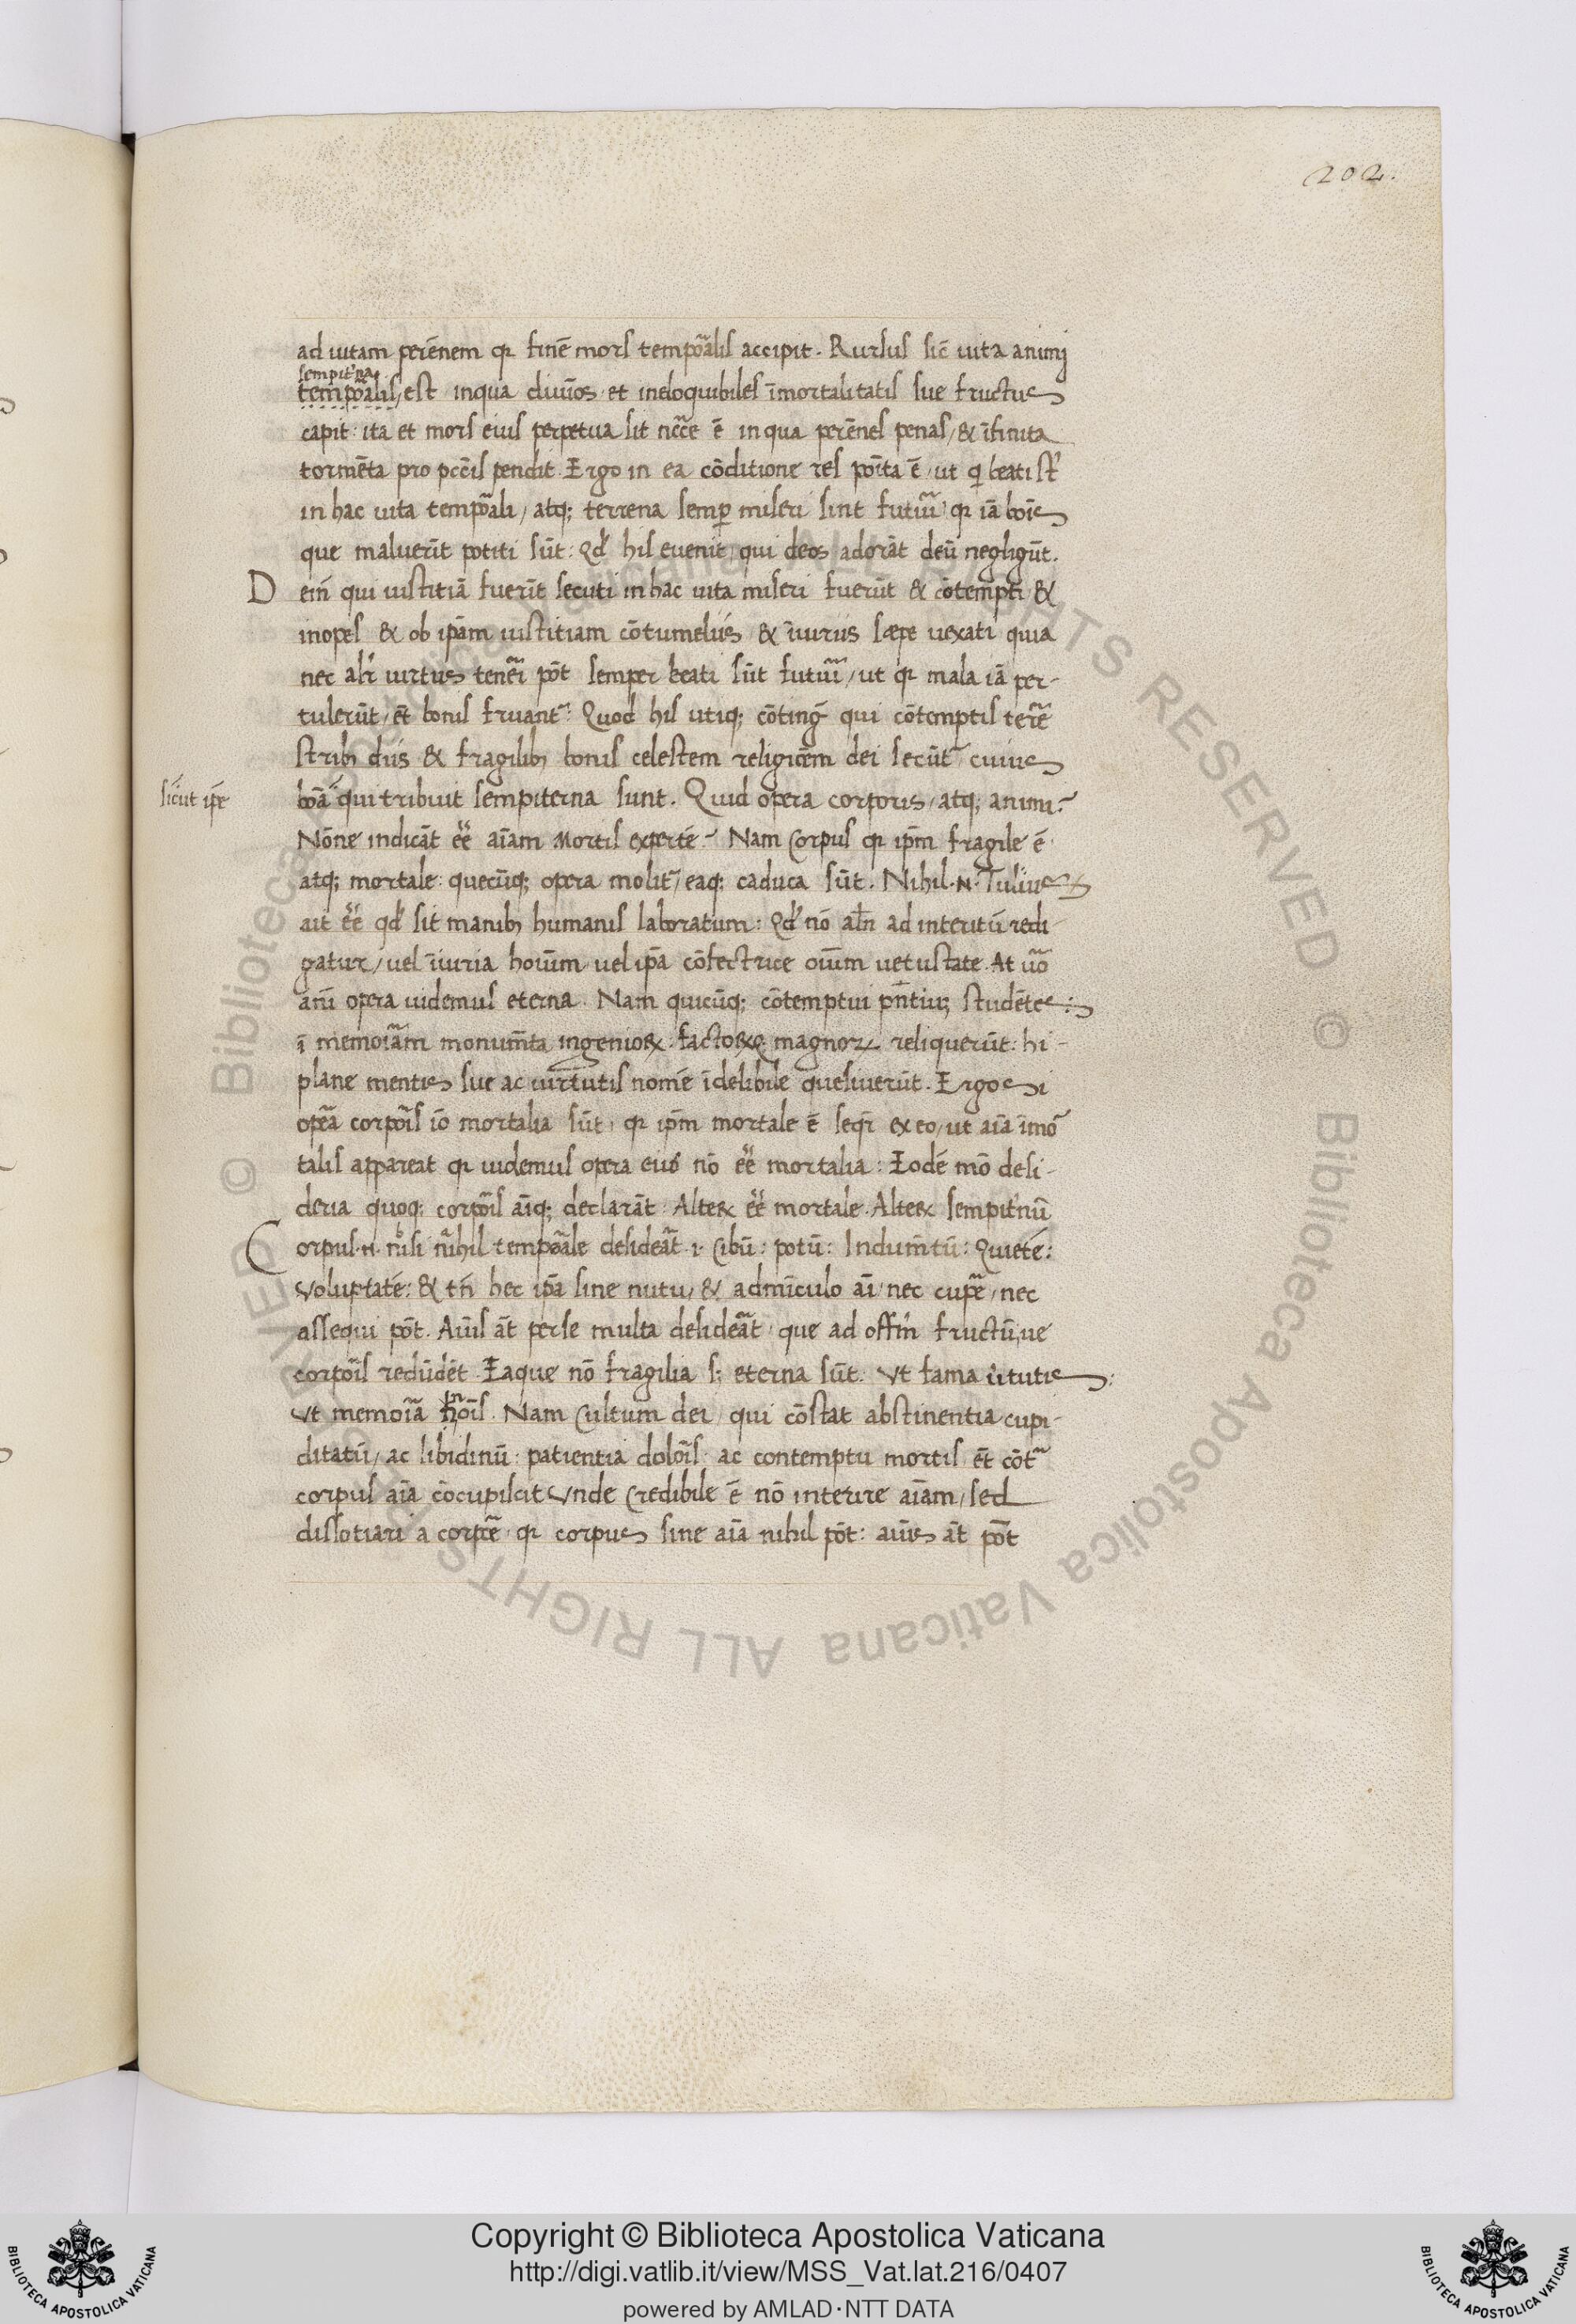 202.
ad uitam perēnem qr finē mors tempo͂alis accipit. Rursus sic̄ uita animj
sempit'na
tempo͂alis, est inqua diuīos et ineloquibiles īmortalitatis sue fructus
capit: ita et mors eius perpetua sit nc̄c̄e ē in qua perēnes penas, & īfinita
tormēta pro pcc̄is pendit. Ergo in ea cōditione res poīta ē, ut q beati st̄
in hac uita tempo͂ali, atq; terrena semp miseri sint futuı͂ qr iā boīs
que maluerīt potiti sūt: qd' his euenit, qui deos adorāt deū negligūt.
Deiñ qui iustitiā fuerīt secuti in hac uita miseri fuerūt & cōtempti &
inopes & ob ipām iustitiam cōtumeliis & īiuriis sæpe uexati quia
nec alr' uirtus teneri pōt semper beati sūt futuı͂, ut qr mala iā per-
tulerūt, ēt bonis fruant': Quod his utiq; cōting̃ qui cōtemptis tere͂
strib; diis & fragilib; bonis celestem religiōem dei secūt' cuius
sicut ip̄e
boā qui tribuit sempiterna sunt. Quid opera corporis, atq; animi?
Nōne indicāt ēe aīam mortis expertē? Nam corpus qr ip̄m fragile ē
atq; mortale: quecūq; opera molit', eaq; caduca sūt. Nihil .n. Tulius
ait ēe qd' sit manib; humanis laboratum: qd' nō aln̄ ad interitū redi-
gatur, uel īiuria hoīum uel ip̄a cōfectrice oīum uetustate. At uo͂
anī opera uidemus eterna. Nam quicūq; cōtemptui pn̄tiū; studētes:
ī memoi͂am monum̄ta ingeniorꝝ: factorꝝq; magnorꝝ reliquerūt: hi-
plane mentis sue ac uirtutis nomē īdelibile quesiuerūt. Ergo si
ope͂a corpo͂is iō mortalia sūt, qr ip̄m mortale ē seqr̄ ex eo, ut aīa īmo͂
talis appareat qr uidemus opera eius nō ēe mortalia: Eodē mō desi-
deria quoq; corpo͂is aīq; declarāt: Alterꝝ ēe mortale. Alterꝝ sempit'nū
Corpus .n. nisi nihil tempo͂ale deside͂at .i. cibū: potū: Indum̄tū: Quietē:
voluptatē: & tn̄ hec ip̄a sine nutu, & admīculo aī, nec cupe͂, nec
assequi pōt. Aīus āt per se multa deside͂at, que ad offm̄ fructū;ue
corpo͂is redūdēt. Eaque nō fragilia s; eterna sūt. Ut fama ūtutis:
ut memoi͂a hoīs. Nam cultum dei, qui cōstat abstinentia cupi-
ditatū, ac libidinū: patientia dolo͂is: ac contemptu mortis ēt cōt͂
corpus aīa cōcupiscit unde credibile ē nō interire aīam, sed
dissotiari a corpe͂ qr corpus sine aīa nihil pōt: aīus āt pōt
Copyright © Biblioteca Apostolica Vaticana
http://digi.vatlib.it/view/MSS_Vat.lat.216/0407
powered by AMLAD·NTT DATA
BIBLIOTECA APOSTOLICA VATICANA
BIBLIOTECA APOSTOLICA VATICANA
© Biblioteca Apostolica Vaticana ALL RIGHTS RESERVED
© Biblioteca Apostolica Vaticana ALL RIGHTS RESERVED